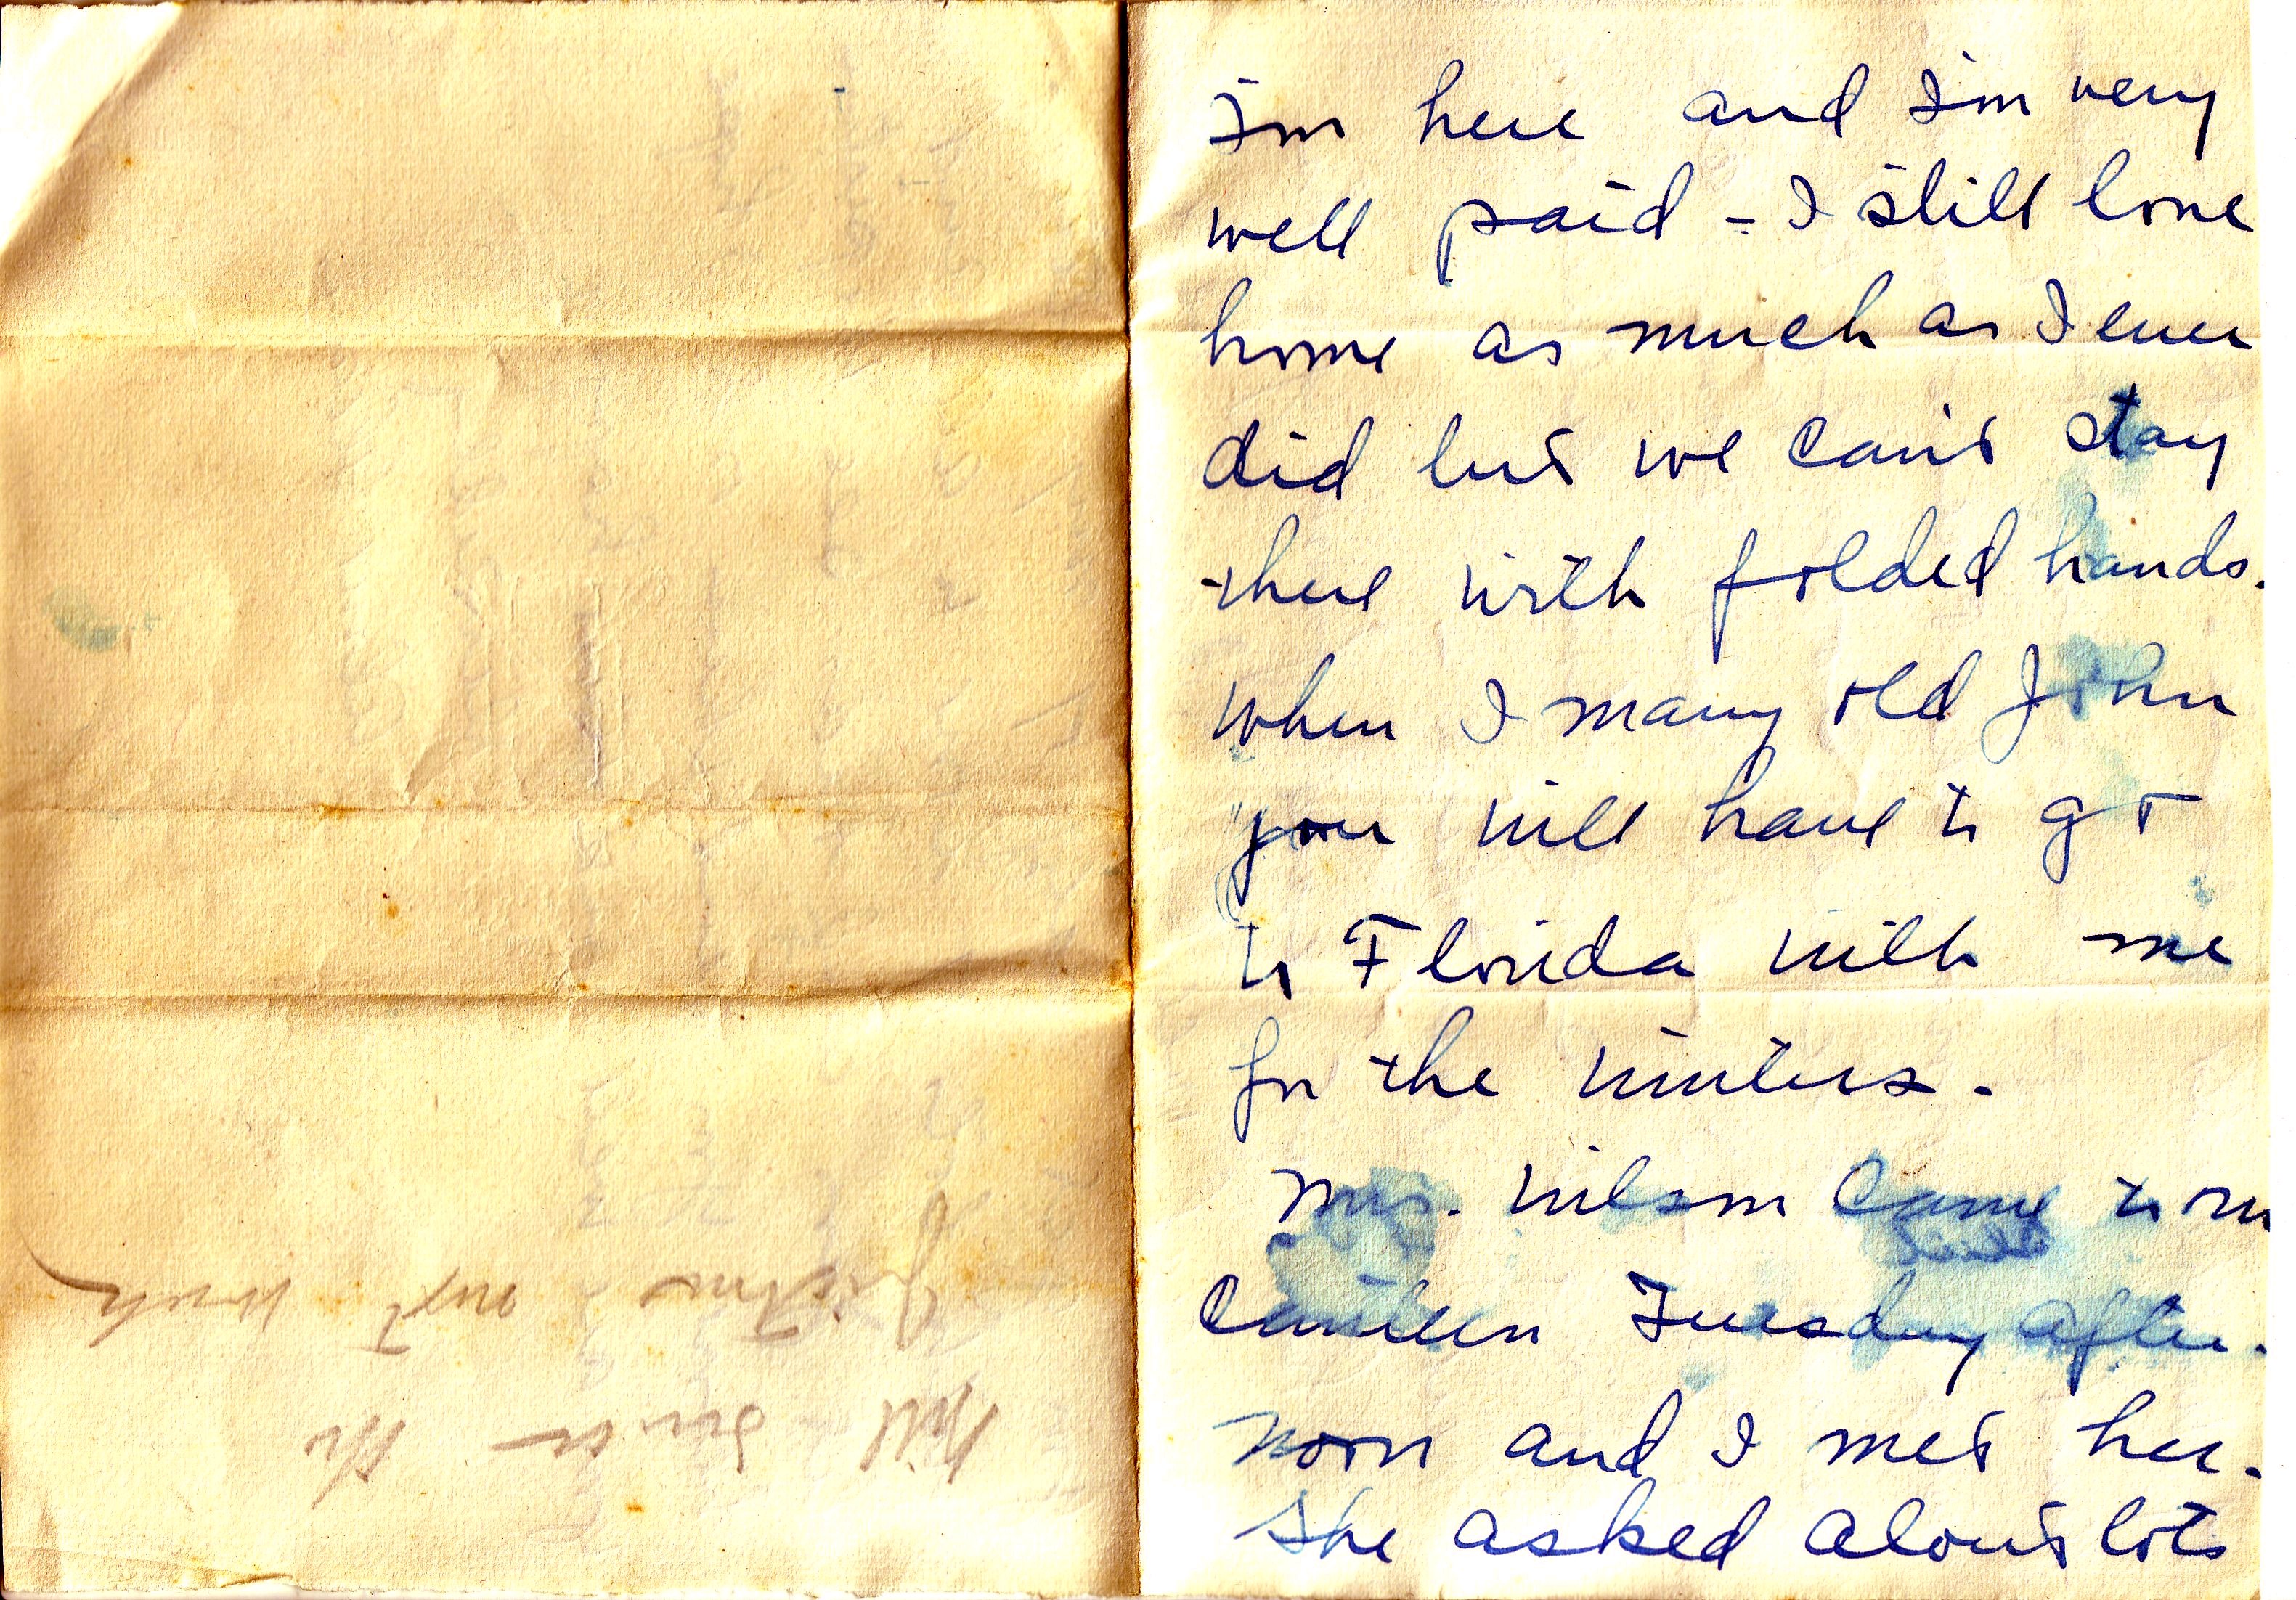 Will send the
pictures next week
I'm here and I'm very
well paid - I still love
home as much as I ever
did but we can't stay
there with folded hands.
When I marry old John
you will have to go
to Florida with me
for the winters.
Mrs. Wilson came to our
Canteen Tuesday after-
noon and I met her.
She asked about lots